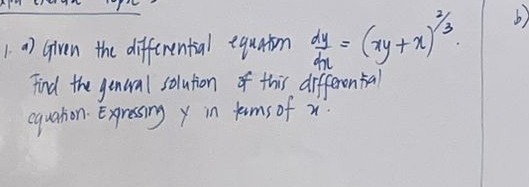 1. a) Given the differential equation dy/dx = (xy+x)^2/3.
Find the general solution of this differential
equation. Expressing y in terms of x.
b)